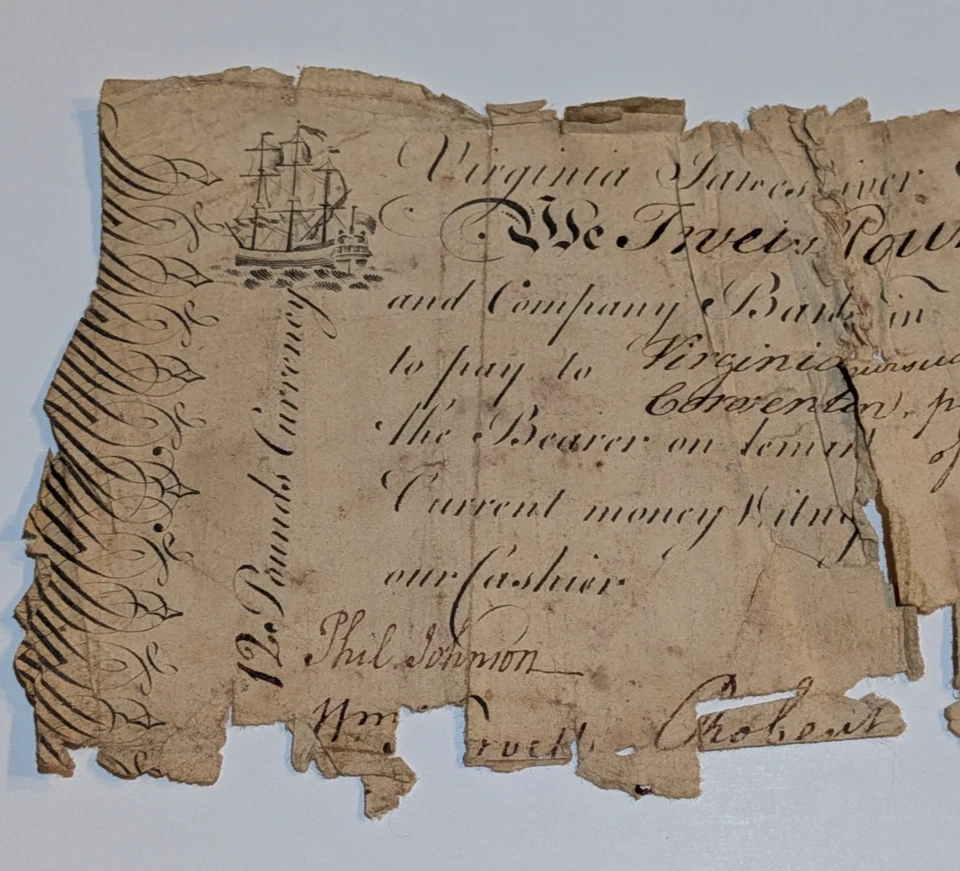 Virginia James iver
We Tweis Pou
and Company Bank in
to pay to Virginia pursu
Convention, p
the Bearer on demand of
Current money Witn
our Cashier
12 Pounds Currency
Phil. Johnson
Wm Robert